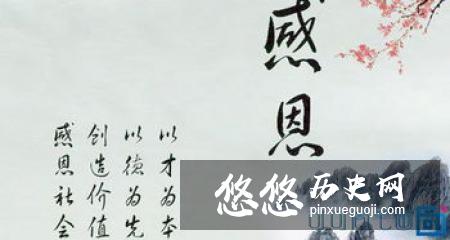 感恩
以才为本
以德为先
创造价值
感恩社会
悠悠历史网
pinxueguoji.com